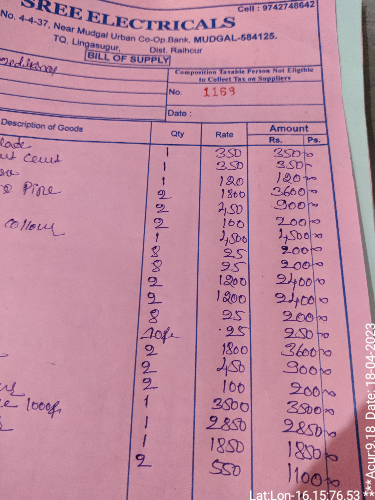 Cell : 9742748642
SREE ELECTRICALS
No. 4-4-37, Near Mudgal Urban Co-Op.Bank, MUDGAL-584125.
TQ. Lingasugur, Dist. Raihcur
BILL OF SUPPLY
Composition Taxable Person Not Eligible
to Collect Tax on Suppliers
No. 1169
Date :
Description of Goods Qty Rate Amount
Rs. Ps.
1 350 350
1 350 350
1 120 120
2 1800 3600
2 450 900
2 100 200
1 4500 4500
8 25 200
8 25 200
2 1200 2400
2 1200 2400
8 25 200
25 250
2 1800 3600
2 450 900
2 100 200
1 3500 3500
1 2850 2850
1 1850 1850
2 550 1100
Lat:Lon-16.15:76.53
***Acur:9.18 Date:18-04-2023